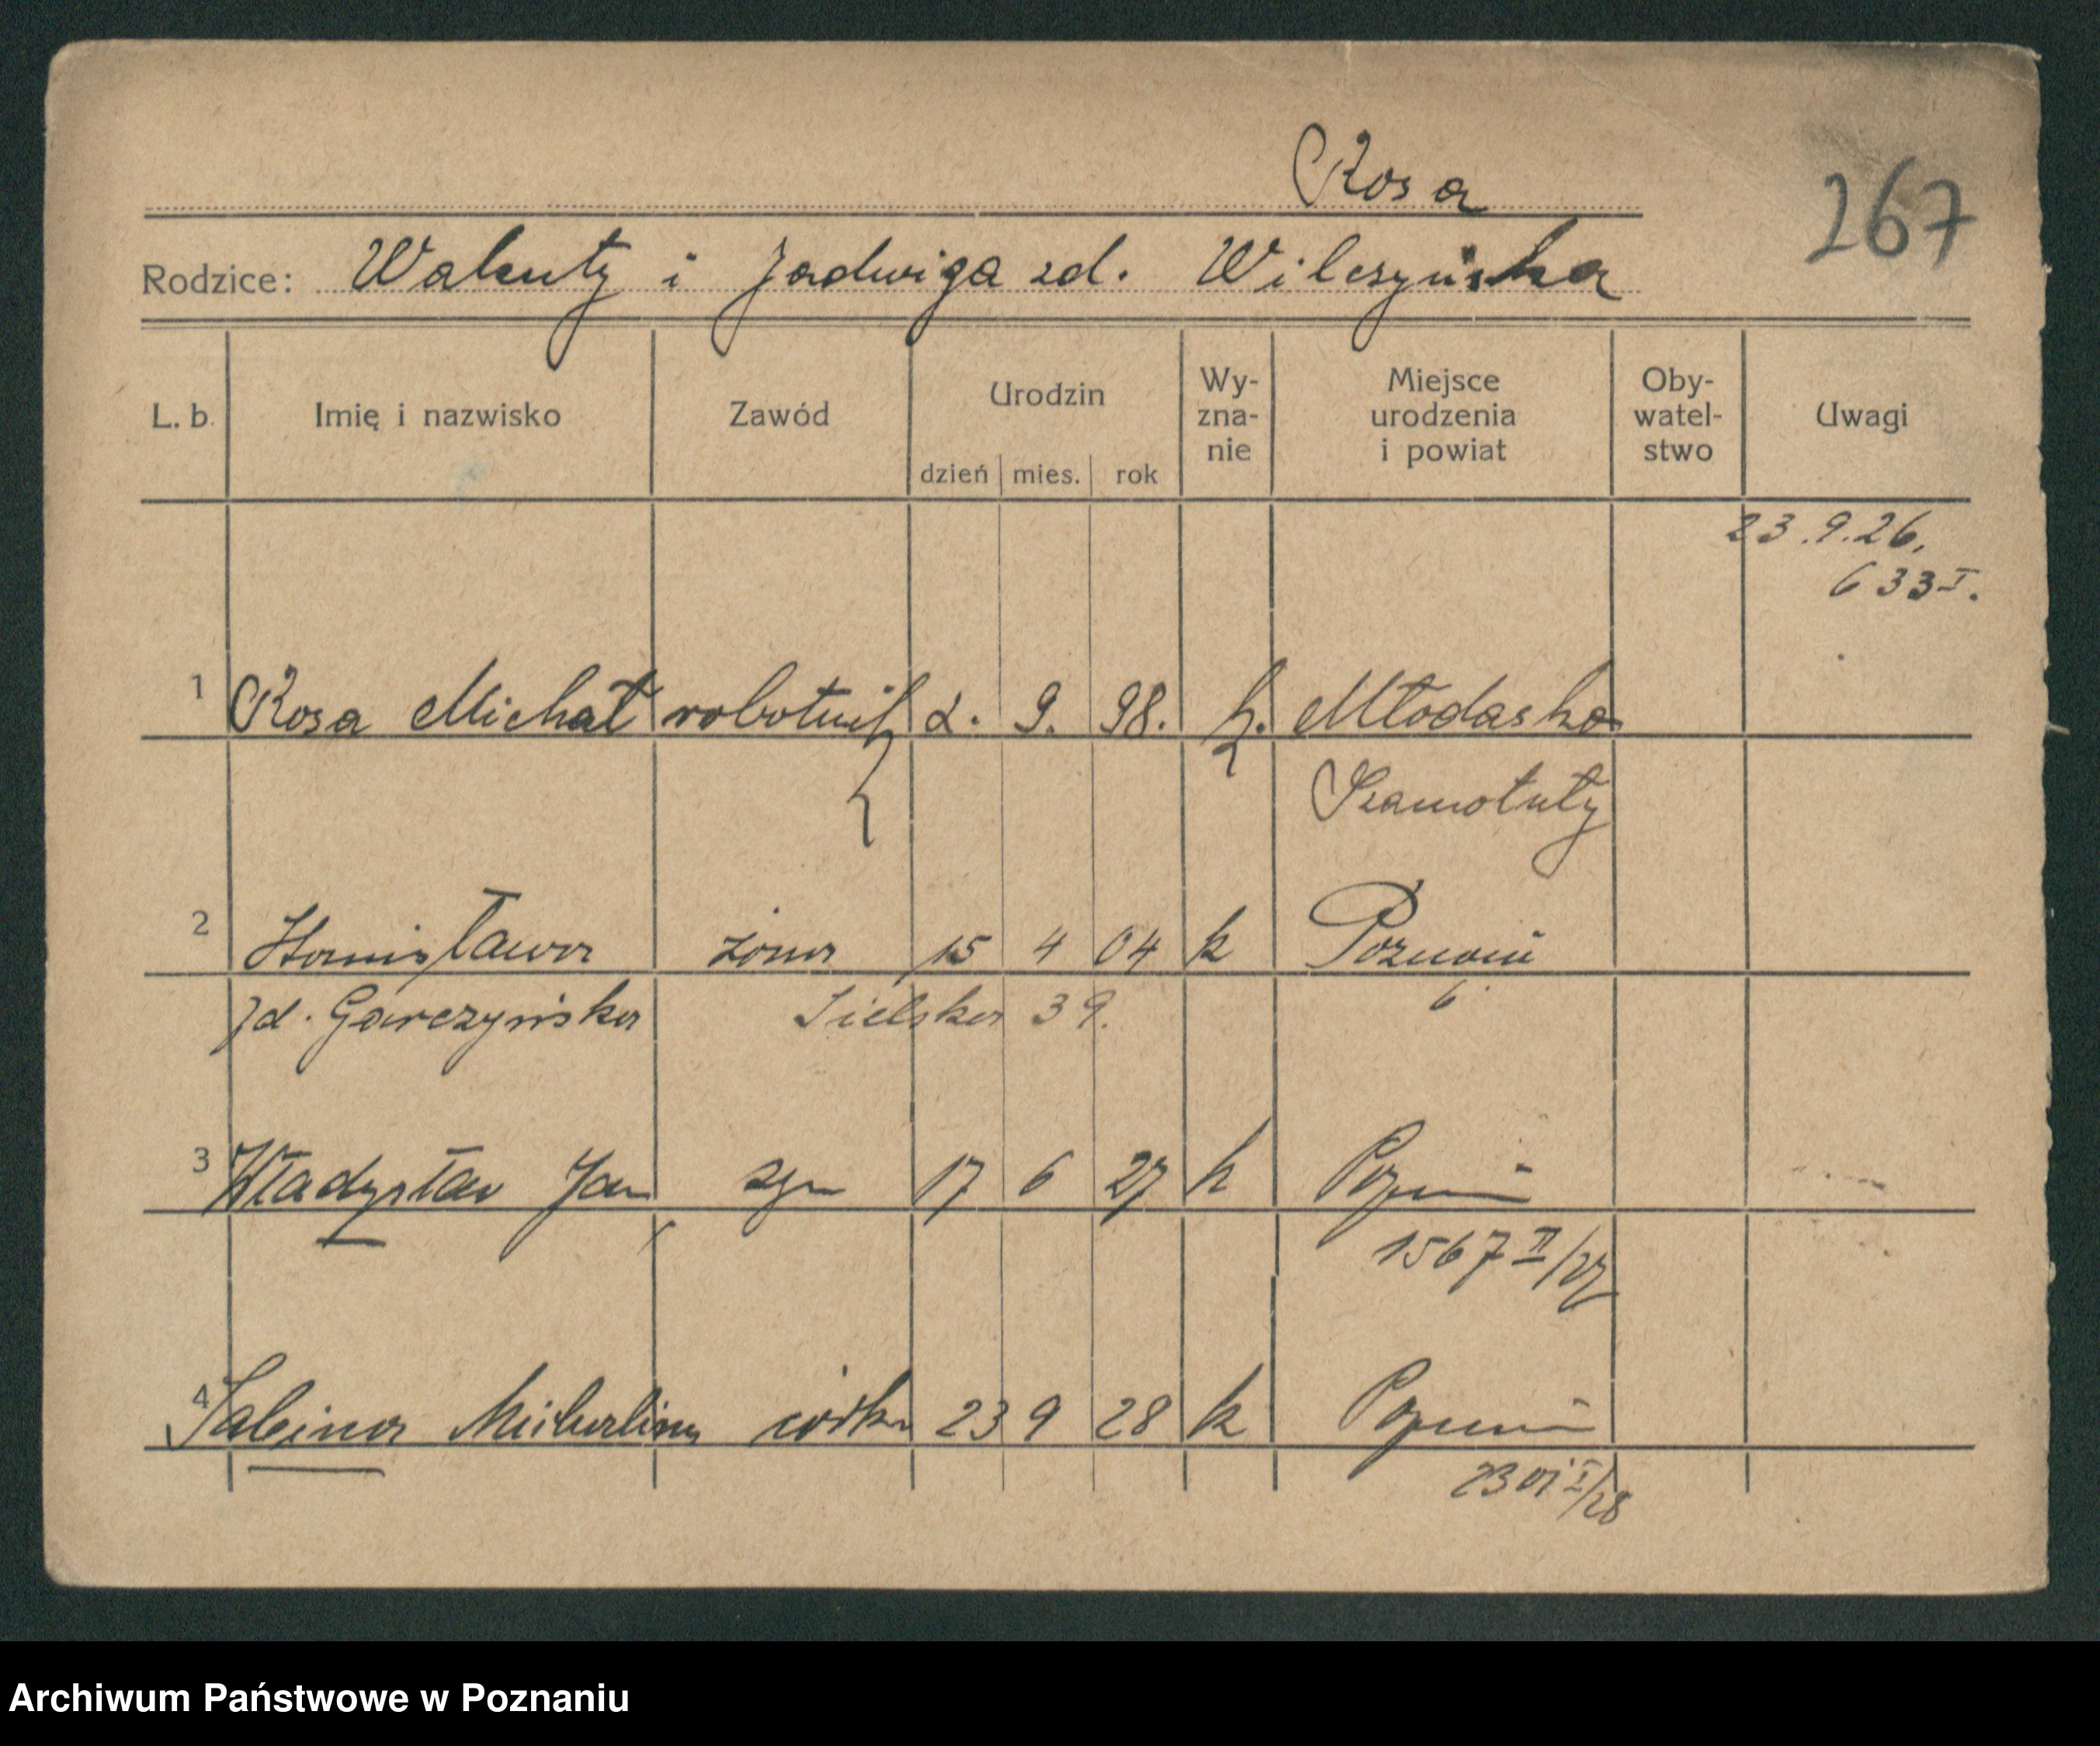 Rosa
267
Rodzice: Walenty i Jadwiga zd. Wilczyńska
L. b. Imię i nazwisko Zawód Urodzin dzień mies. rok Wy-zna-nie Miejsce urodzenia i powiat Oby-watel-stwo Uwagi
23.9.26.
633 I.
1 Rosa Michał robotnik 2. 9. 98. k. Młodasko
Szamotuły
2 Stanisława żona 15 4 04 k Poznań
zd. Garczyńska Sielska 39. 6
3 Władysław Jan syn 17 6 27 k Poznań
1567 II/27
4 Sabina córka 23 9 28 k Poznań
2301 I/28
Archiwum Państwowe w Poznaniu